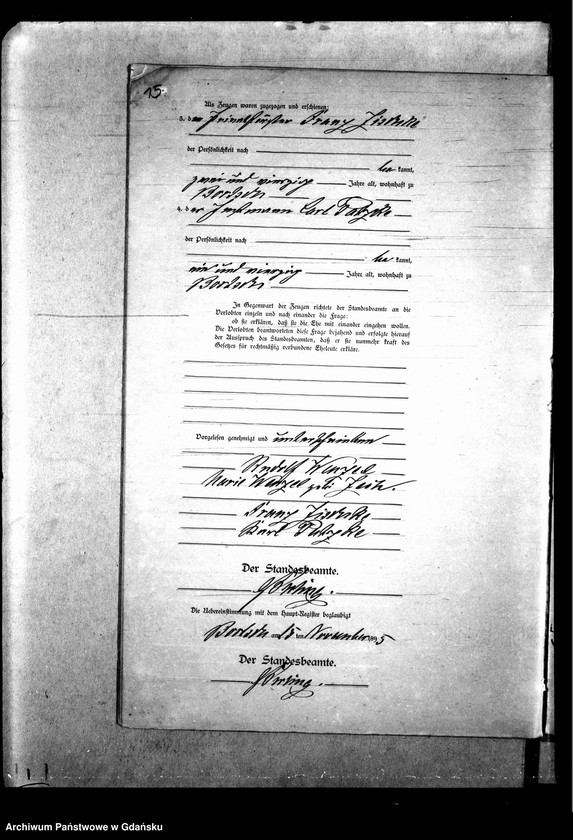 15.
Als Zeugen waren zugezogen und erschienen:
3. der Privatförster Franz
der Persönlichkeit nach
be kannt,
zwei und vierzig Jahre alt, wohnhaft zu
4. der Instmann Carl
der Persönlichkeit nach
be kannt,
ein und vierzig Jahre alt, wohnhaft zu
In Gegenwart der Zeugen richtete der Standesbeamte an die
Verlobten einzeln und nach einander die Frage:
ob sie erklären, daß sie die Ehe mit einander eingehen wollen.
Die Verlobten beantworteten diese Frage bejahend und erfolgte hierauf
der Ausspruch des Standesbeamten, daß er sie nunmehr kraft des
Gesetzes für rechtmäßig verbundene Eheleute erkläre.
Vorgelesen, genehmigt und unterschrieben
Rudolf Wenzel
Marie Wenzel geb.
Franz
Karl
Der Standesbeamte.
Die Uebereinstimmung mit dem Haupt-Register beglaubigt
am 15 ten November 1895
Der Standesbeamte.
Archiwum Państwowe w Gdańsku